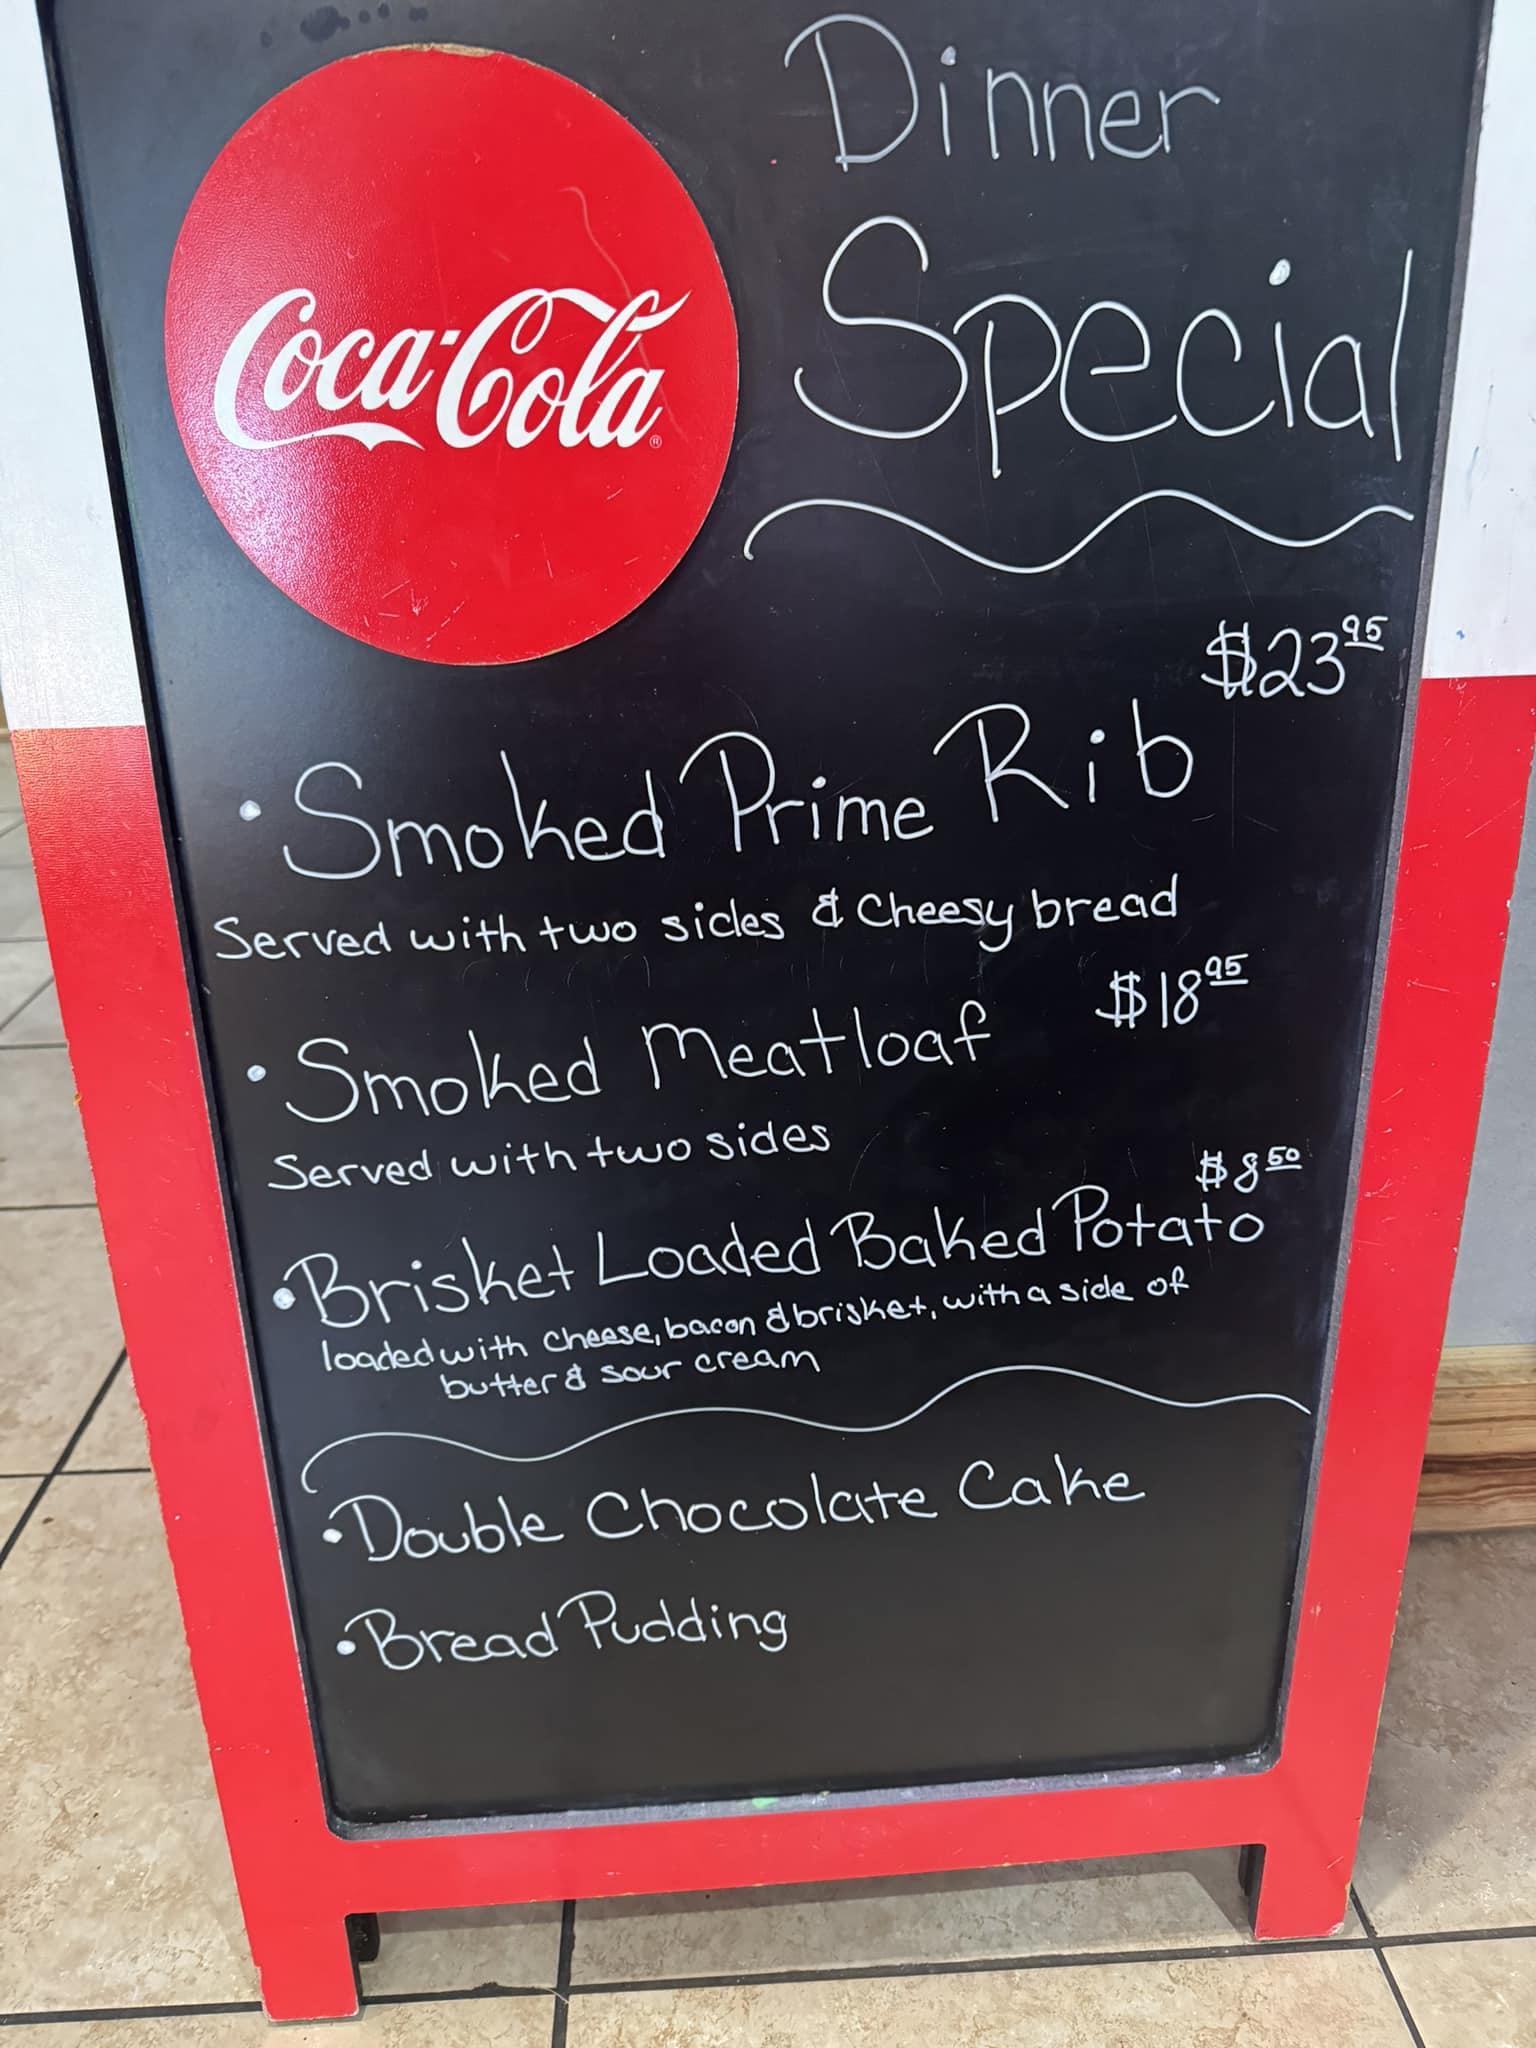 Coca-Cola
®
Dinner
Special
$23 95
• Smoked Prime Rib
Served with two sides & Cheesy bread
$18 95
• Smoked Meatloaf
Served with two sides
$8 50
• Brisket Loaded Baked Potato
loaded with cheese, bacon & brisket, with a side of
butter & sour cream
• Double Chocolate Cake
• Bread Pudding